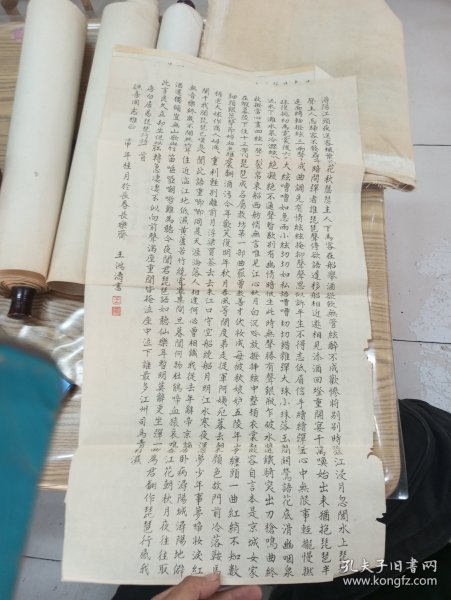 潯陽江頭夜送客楓葉荻花秋瑟瑟主人下馬客在船舉酒欲飲無管絃醉不成歡慘將別別時茫江浸月忽聞水上琵
聲主人忘歸客不發尋聲暗問彈者誰琵琶聲停欲語遲移船相近邀相見添酒回燈重開宴千呼萬喚始出來猶抱琵琶半
遮面轉軸撥絃三兩聲未成曲調先有情絃絃掩抑聲聲思似訴平生不得志低眉信手續續彈說盡心中無限事輕攏慢撚
抹復挑初為霓裳後六幺大絃嘈嘈如急雨小絃切切如私語嘈嘈切切錯雜彈大珠小珠落玉盤間關鶯語花底滑幽咽泉
流水下灘水泉冷澀絃凝絕凝絕不通聲暫歇別有幽情暗恨生此時無聲勝有聲銀瓶乍破水漿迸鐵騎突出刀鎗鳴曲終
收撥當心畫四絃一聲如裂帛東船西舫悄無言唯見江心秋月白沉吟放撥插絃中整頓衣裳起斂容自言本是京城女家
在蝦蟆陵下住十三學得琵琶成名屬教坊第一部曲罷曾教善才伏妝成每被秋娘妒五陵年少爭纏頭一曲紅綃不知數
鈿頭銀篦擊節碎血色羅裙翻酒污今年歡笑復明年秋月春風等閒度弟走從軍阿姨死暮去朝來顏色故門前冷落鞍馬
稀老大嫁作商人婦商人重利輕別離前月浮梁買茶去去來江口守空船繞船月明江水寒夜深忽夢少年事夢啼妝淚紅
闌干我聞琵琶已嘆息又聞此語重唧唧同是天涯淪落人相逢何必曾相識我從去年辭帝京謫居臥病潯陽城潯陽地僻
無音樂終歲不聞絲竹聲住近湓江地低濕黃蘆苦竹繞宅生其間旦暮聞何物杜鵑啼血猿哀鳴春江花朝秋月夜往往取
酒還獨傾豈無山歌與村笛嘔啞嘲哳難為聽今夜聞君琵琶語如聽仙樂耳暫明莫辭更坐彈一曲為君翻作琵琶行感我
此言良久立却坐促絃絃轉急淒淒不似向前聲滿座重聞皆掩泣座中泣下誰最多江州司馬青衫濕
唐白居易琵琶行詩一首
同志雅正 申年桂月於長春長樂齋 王鴻濤書
孔夫子旧书网
www.kongfz.com